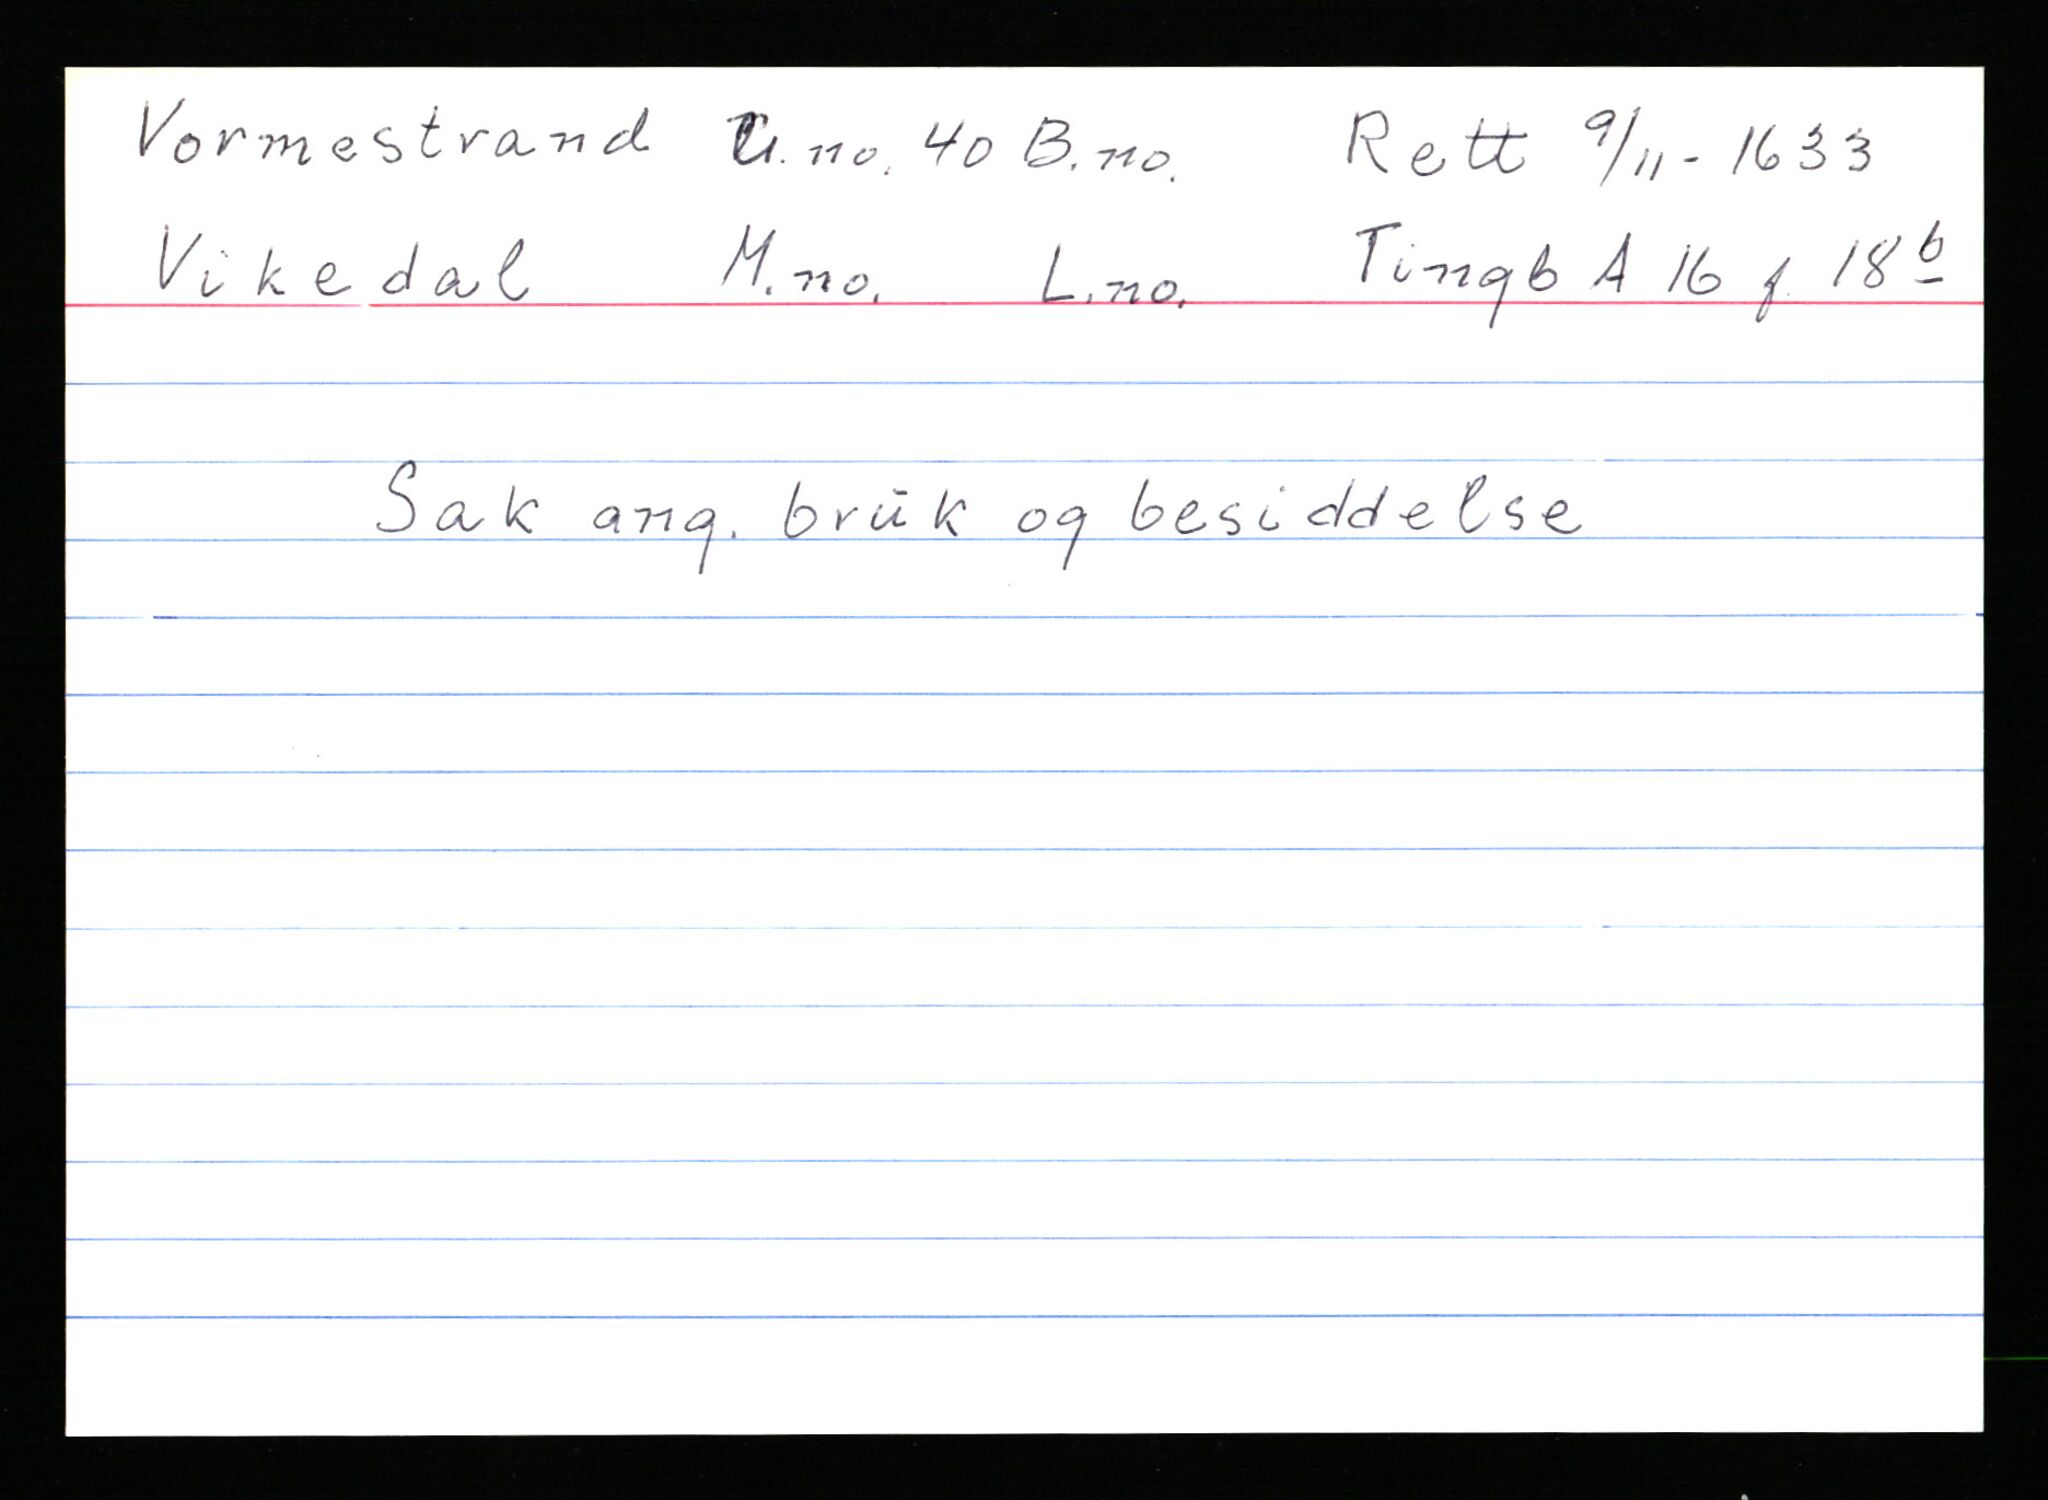 Vormestrand G.no. 40 B.no. Rett 9/11 - 1633
Vikedal M.no. L.no. Tingb A 16 f. 18 b
Sak ang. brŭk og besiddelse